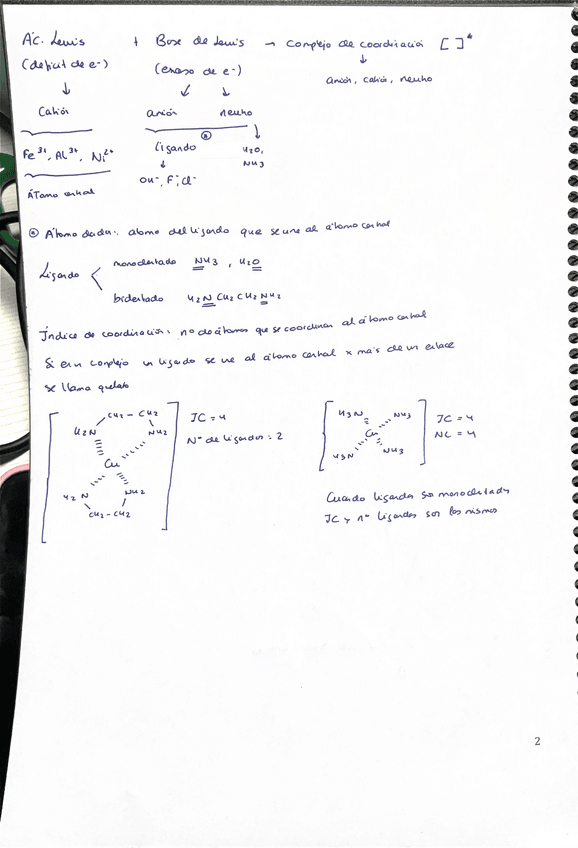 Ác. Lewis + Base de Lewis → Complejo de coordinación [ ]*
(deficit de e-) (exceso de e-) ↓
↓ ↙ ↘ anión, catión, neutro
Catión anión neutro
Fe³⁺, Al³⁺, Ni²⁺ Ligando H2O,
↓ NH3
Átomo central OH⁻, F⁻, Cl⁻
Átomo dador: átomo del ligando que se une al átomo central
monodentado NH3 , H2O
Ligando <
bidentado H2NCH2CH2NH2
Índice de coordinación: nº de átomos que se coordinan al átomo central
Si en un complejo un ligando se une al átomo central x mais de un enlace
se llama quelato
CH2 - CH2 IC = 4 H3N NH3 IC = 4
H2N NH2 Nº de ligandos = 2 Cu NL = 4
Cu H3N NH3
H2N NH2 Cuando ligandos son monodentados
CH2 - CH2 IC y nº ligandos son los mismos
2